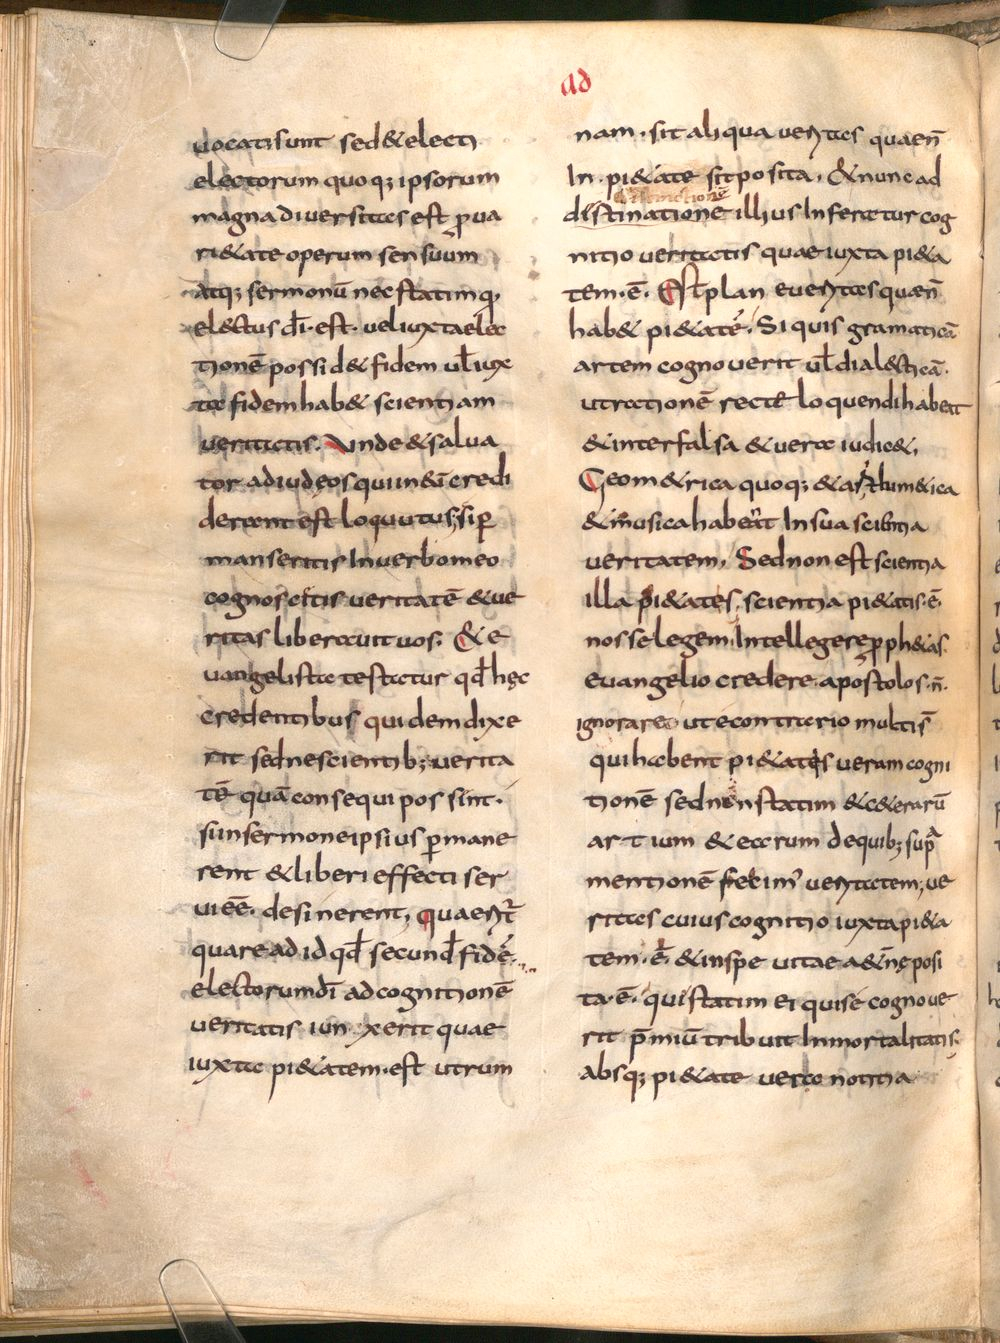 ad
uocati sunt sed & electi
electorum quoq; ipsorum
magna diuersitas est p̱ ua
ri&ate operum sensuum
atq; sermonū nec statim q,
el&ctus dī· est· uel iuxta elec
tionē possid& fidem uƚ iux
ta fidem hab& scientiam
ueritatis. Unde & salua
tor ad iudęos qui in eū credi
derant est loquutus; si per
manseritis In uerbo meo
cognoscitis ueritatē & ue
ritas liberauit uos. & e
uangelista testatur qđ hęc
credentibus quidem dixe
rit sed nescientib; uerita
tē quā consequi possint·
si in sermone ipsius p̱mane
rent & liberi effecti ser
ui eē· desinerent; quaerit̄
quare ad id qđ secund̄ fidē·
electorum dī ad cognitionē
ueritatis iun xerit quae
iuxta pi&atem· est utrum
nam· sit aliqua ueritas quae n̄
In· pi&ate sit posita· & nunc ad
destinationē illius Inferatur cog
nitio ueritatis quae iuxta pi&a
tem· ē· Est plan e ueritas quæ n̄
hab& pi&atē· Si quis gramaticā
artem cognouerit uƚ dial&ticā·
ut rationē recte loquendi habeat
& inter falsa & uera iudic&·
Geom&rica quoq; & arithm&ica
& musica habe͞nt In sua scientia
ueritatem, Sed non est scientia
illa pi&ates, scientia pi&atis· ē·
nosse legem· Intellegere p̱ph&as·
euangelio credere· apostolos· n̄·
ignorare· ut e contrario multis̄
qui habent pi&atis ueram cogni
tionē sed non statim & c&erarū
artium & eorum de quib; supͣ
mentionē fecim' ueritatem; ue
ritas cuius cognitio iuxta pi&a
tem· ē· & in spe uitae a&nę posi
ta· ē· qui statim ei qui se cognoue
rit p̄miū tribuit Inmortalitatis·
absq; pi&ate uero notitia